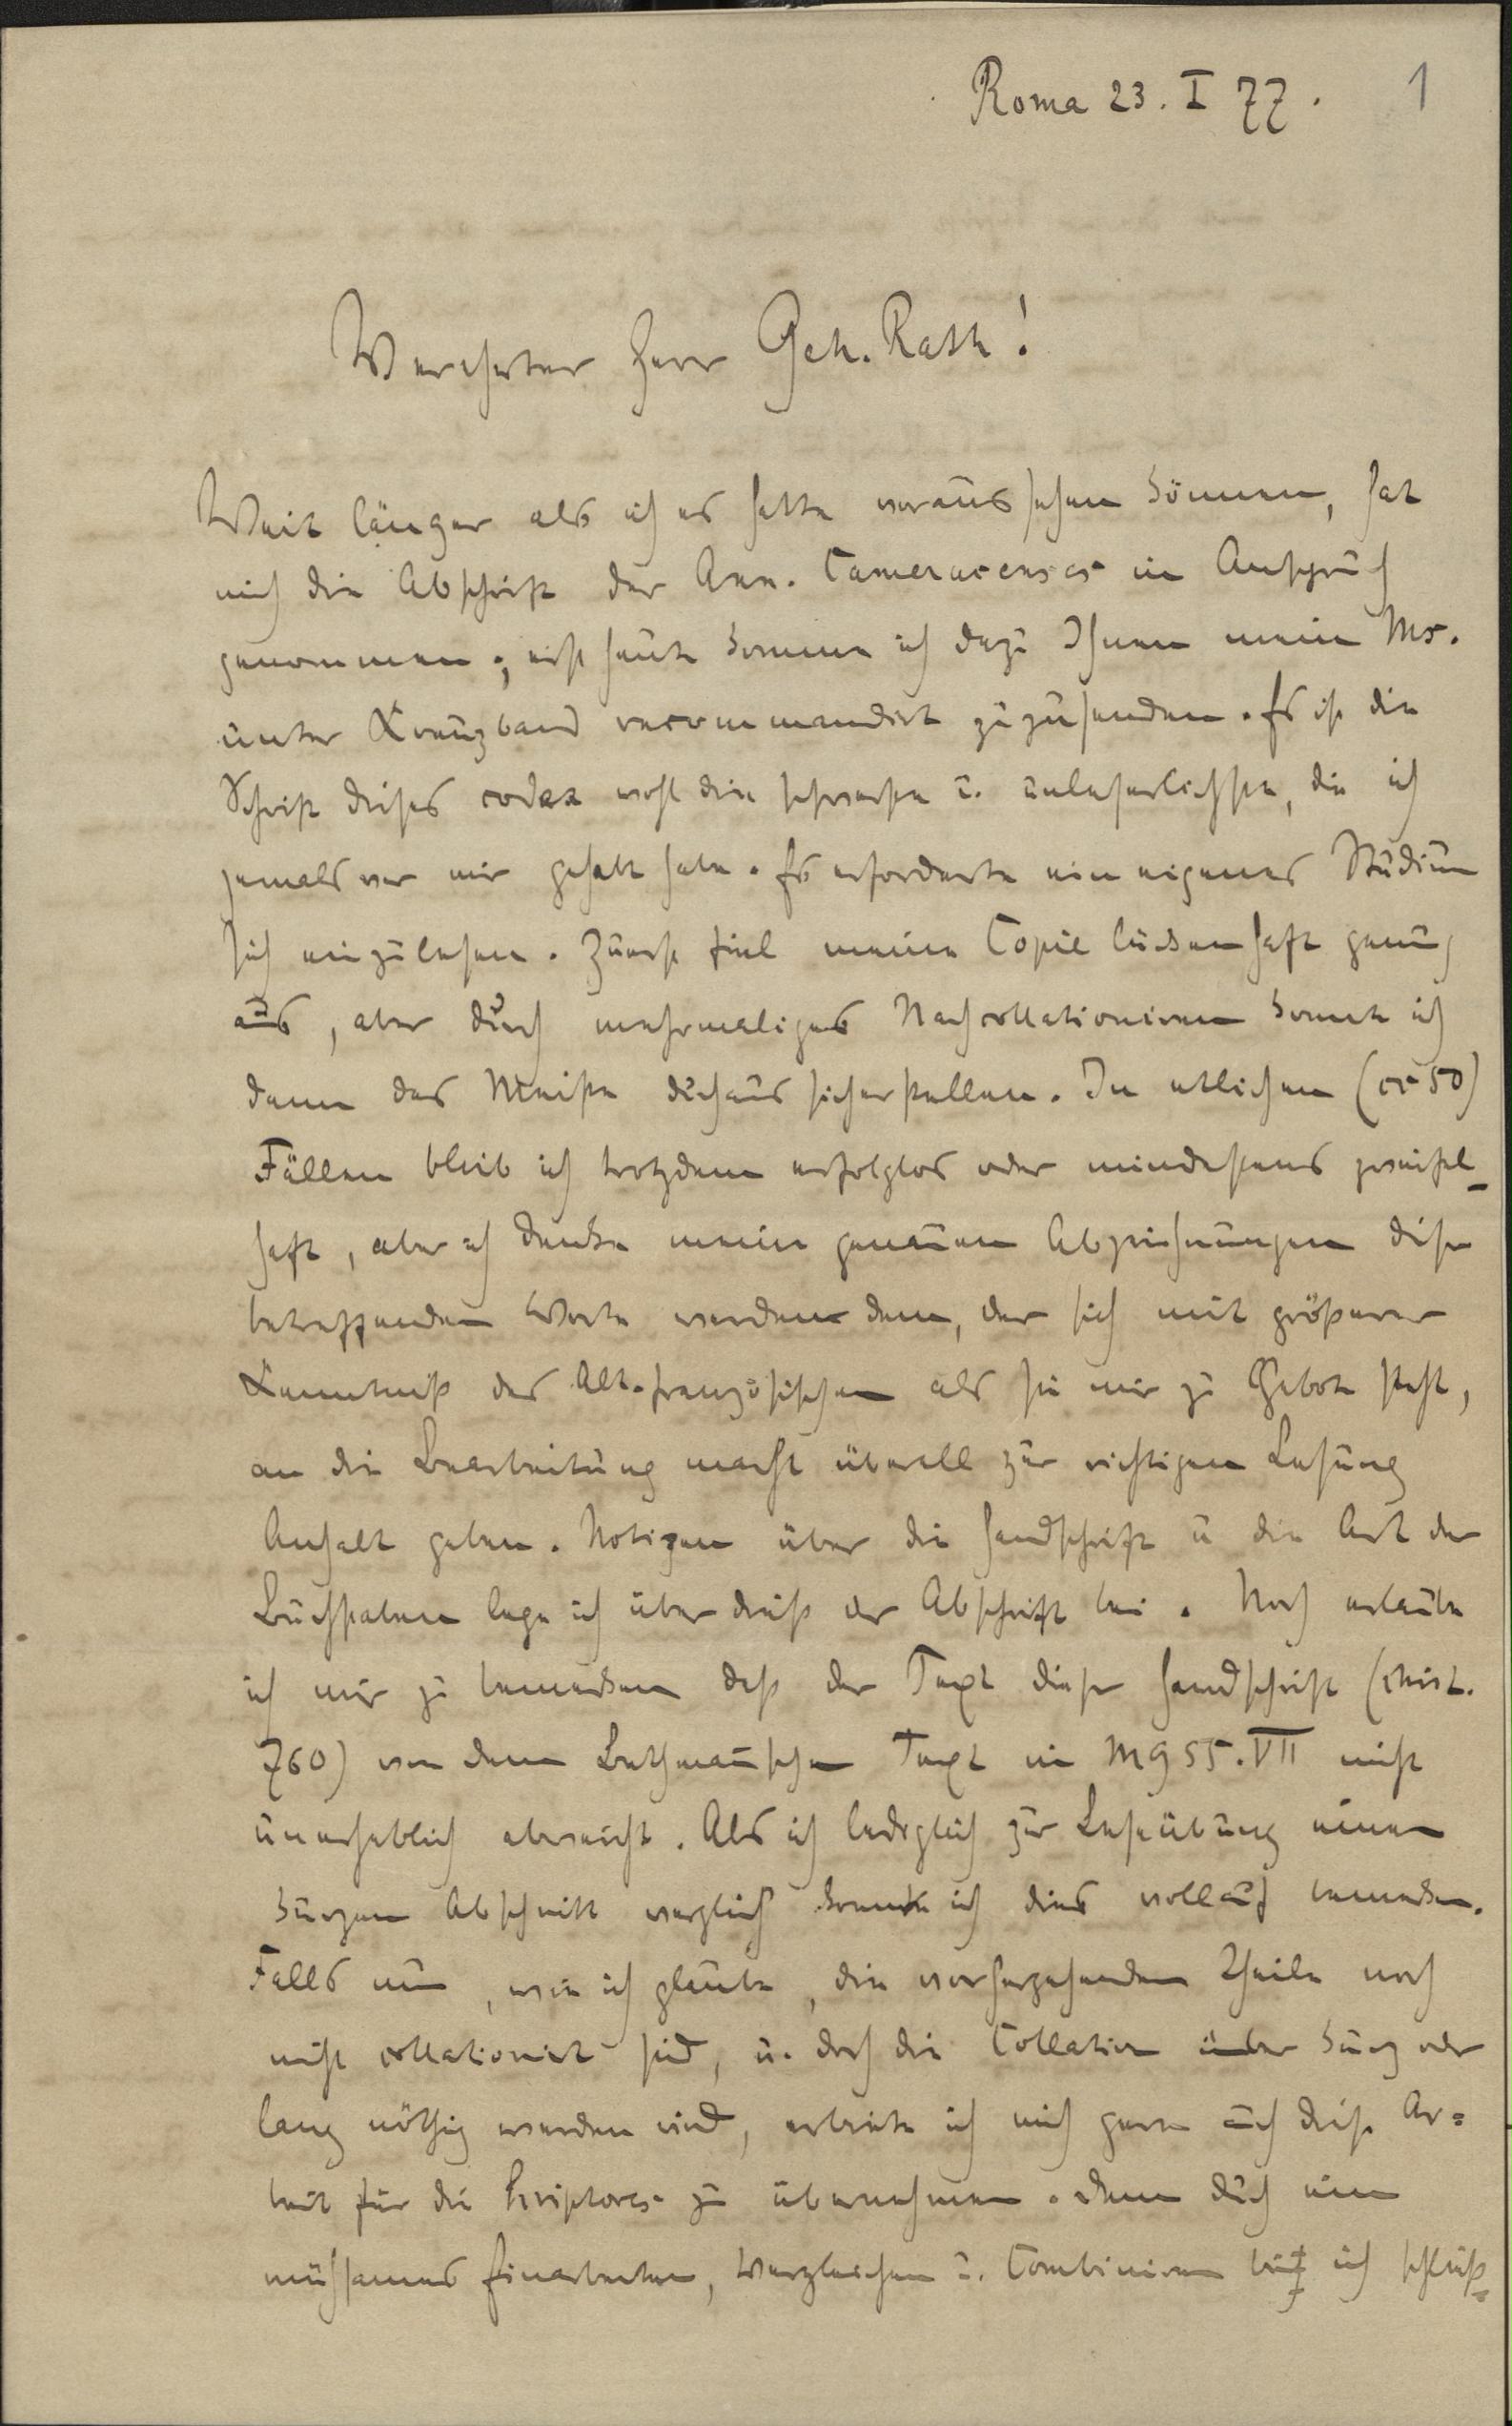 Roma 23. I 77.
1
Verehrter Herr Geh. Rath!
Weit länger als ich es hatte voraussehen können, hat
mich die Abschrift der Ann. Cameracenses in Anspruch
genommen; erst heute komme ich dazu Ihnen mein Ms.
unter Kreuzband recommandirt zuzusenden. Es ist die
Schrift dieses codex wohl die schwerste u. unleserlichste, die ich
jemals vor mir gehabt habe. Es erforderte ein eigenes Studium
sich einzulesen. Zuerst fiel meine Copie lückenhaft genug
aus, aber durch mehrmaliges Nachcollationiren konnte ich
dann das Meiste durchaus sicherstellen. In etlichen (cc 50)
Fällen blieb ich trotzdem erfolglos oder mindestens zweifel-
haft, aber ich denke meine genauen Abzeichnungen dieser
betreffenden Worte werden dem, der sich mit größerer
Kenntniß des Alt-französischen als sie mir zu Gebote steht,
an die Bearbeitung macht überall zur richtigen Lesung
Anhalt geben. Notizen über die Handschrift u die Art der
Buchstaben lege ich über dieß der Abschrift bei. Noch erlaube
ich mir zu bemerken daß der Text dieser Handschrift (Christ.
760) von dem Bethmannschen Text in MG SS. VII nicht
unerheblich abweicht. Als ich lediglich zur Leseübung einen
kurzen Abschnitt verglich konnte ich dies vollauf bemerken.
Falls nun, wie ich glaube, die vorhergehenden Theile noch
nicht collationirt sind, u. doch die Collation über kurz oder
lang nöthig werden wird, erbiete ich mich gern auch diese Ar=
beit für die Scriptores zu übernehmen. denn durch ein
mühsames Einarbeiten, Vergleichen u. Combiniren bin ich schließ=